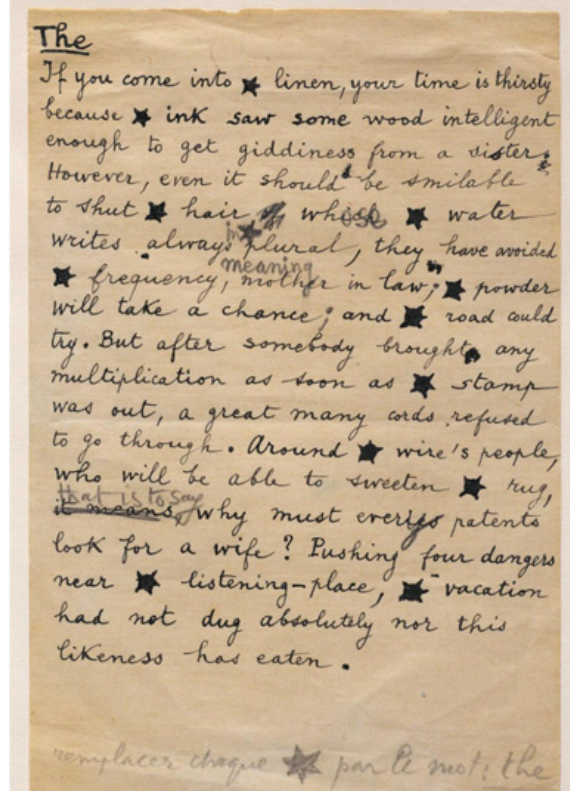 The
If you come into ★ linen, your time is thirsty
because ★ ink saw some wood intelligent
enough to get giddiness from a sister.
However, even it should be smilable
to shut ★ hair whose ★ water
writes always plural, they have avoided
meaning
★ frequency, mother in law; ★ powder
will take a chance; and ★ road could
try. But after somebody brought any
multiplication as soon as ★ stamp
was out, a great many cords refused
to go through. Around ★ wire's people,
who will be able to sweeten ★ rug,
that is to say
it means, why must every patents
look for a wife? Pushing four dangers
near ★ listening-place, ★ vacation
had not dug absolutely nor this
likeness has eaten.
remplacer chaque ★ par le mot: the